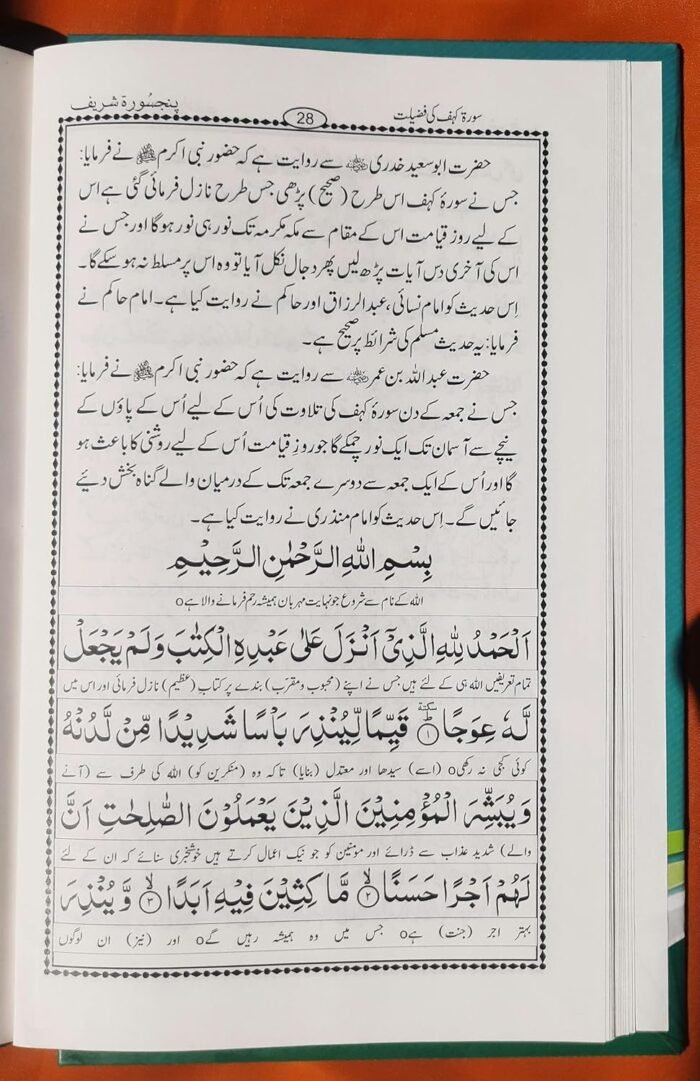 سورۃ کہف کی فضیلت
28
پنجسُورۃ شریف
حضرت ابوسعید خدری ؓ سے روایت ہے کہ حضور نبی اکرم ﷺ نے فرمایا:
جس نے سورۂ کہف اس طرح (صحیح) پڑھی جس طرح نازل فرمائی گئی ہے اس
کے لیے روز قیامت اس کے مقام سے مکہ مکرمہ تک نور ہی نور ہوگا اور جس نے
اس کی آخری دس آیات پڑھ لیں پھر دجال نکل آیا تو وہ اس پر مسلط نہ ہو سکے گا۔
اِس حدیث کو امام نسائی، عبدالرزاق اور حاکم نے روایت کیا ہے۔ امام حاکم نے
فرمایا: یہ حدیث مسلم کی شرائط پر صحیح ہے۔
حضرت عبداللہ بن عمر ؓ سے روایت ہے کہ حضور نبی اکرم ﷺ نے فرمایا:
جس نے جمعہ کے دن سورۂ کہف کی تلاوت کی اُس کے لیے اُس کے پاؤں کے
نیچے سے آسمان تک ایک نور چمکے گا جو روزِ قیامت اُس کے لیے روشنی کا باعث ہو
گا اور اُس کے ایک جمعہ سے دوسرے جمعہ تک کے درمیان والے گناہ بخش دیئے
جائیں گے۔ اِس حدیث کو امام منذری نے روایت کیا ہے۔
بِسْمِ اللهِ الرَّحْمٰنِ الرَّحِيْمِ
اللہ کے نام سے شروع جو نہایت مہربان ہمیشہ رحم فرمانے والا ہے o
اَلْحَمْدُ لِلّٰهِ الَّذِيْٓ اَنْزَلَ عَلٰى عَبْدِهِ الْكِتٰبَ وَلَمْ يَجْعَلْ
تمام تعریفیں اللہ ہی کے لئے ہیں جس نے اپنے (محبوب و مقرّب) بندے پر کتابِ (عظیم) نازل فرمائی اور اس میں
لَّهٗ عِوَجًا ؕ سكتة ﴿۱﴾ قَيِّمًا لِّيُنْذِرَ بَاْسًا شَدِيْدًا مِّنْ لَّدُنْهُ
کوئی کجی نہ رکھی o (اسے) سیدھا اور معتدل (بنایا) تاکہ وہ (منکرین کو) اللہ کی طرف سے (آنے
وَيُبَشِّرَ الْمُؤْمِنِيْنَ الَّذِيْنَ يَعْمَلُوْنَ الصّٰلِحٰتِ اَنَّ
والے) شدید عذاب سے ڈرائے اور مومنین کو جو نیک اعمال کرتے ہیں خوشخبری سنائے کہ ان کے لئے
لَهُمْ اَجْرًا حَسَنًا ۙ﴿۲﴾ مَّا كِثِيْنَ فِيْهِ اَبَدًا ۙ﴿۳﴾ وَّيُنْذِرَ
بہتر اجر (جنت) ہے o جس میں وہ ہمیشہ رہیں گے o اور (نیز) ان لوگوں